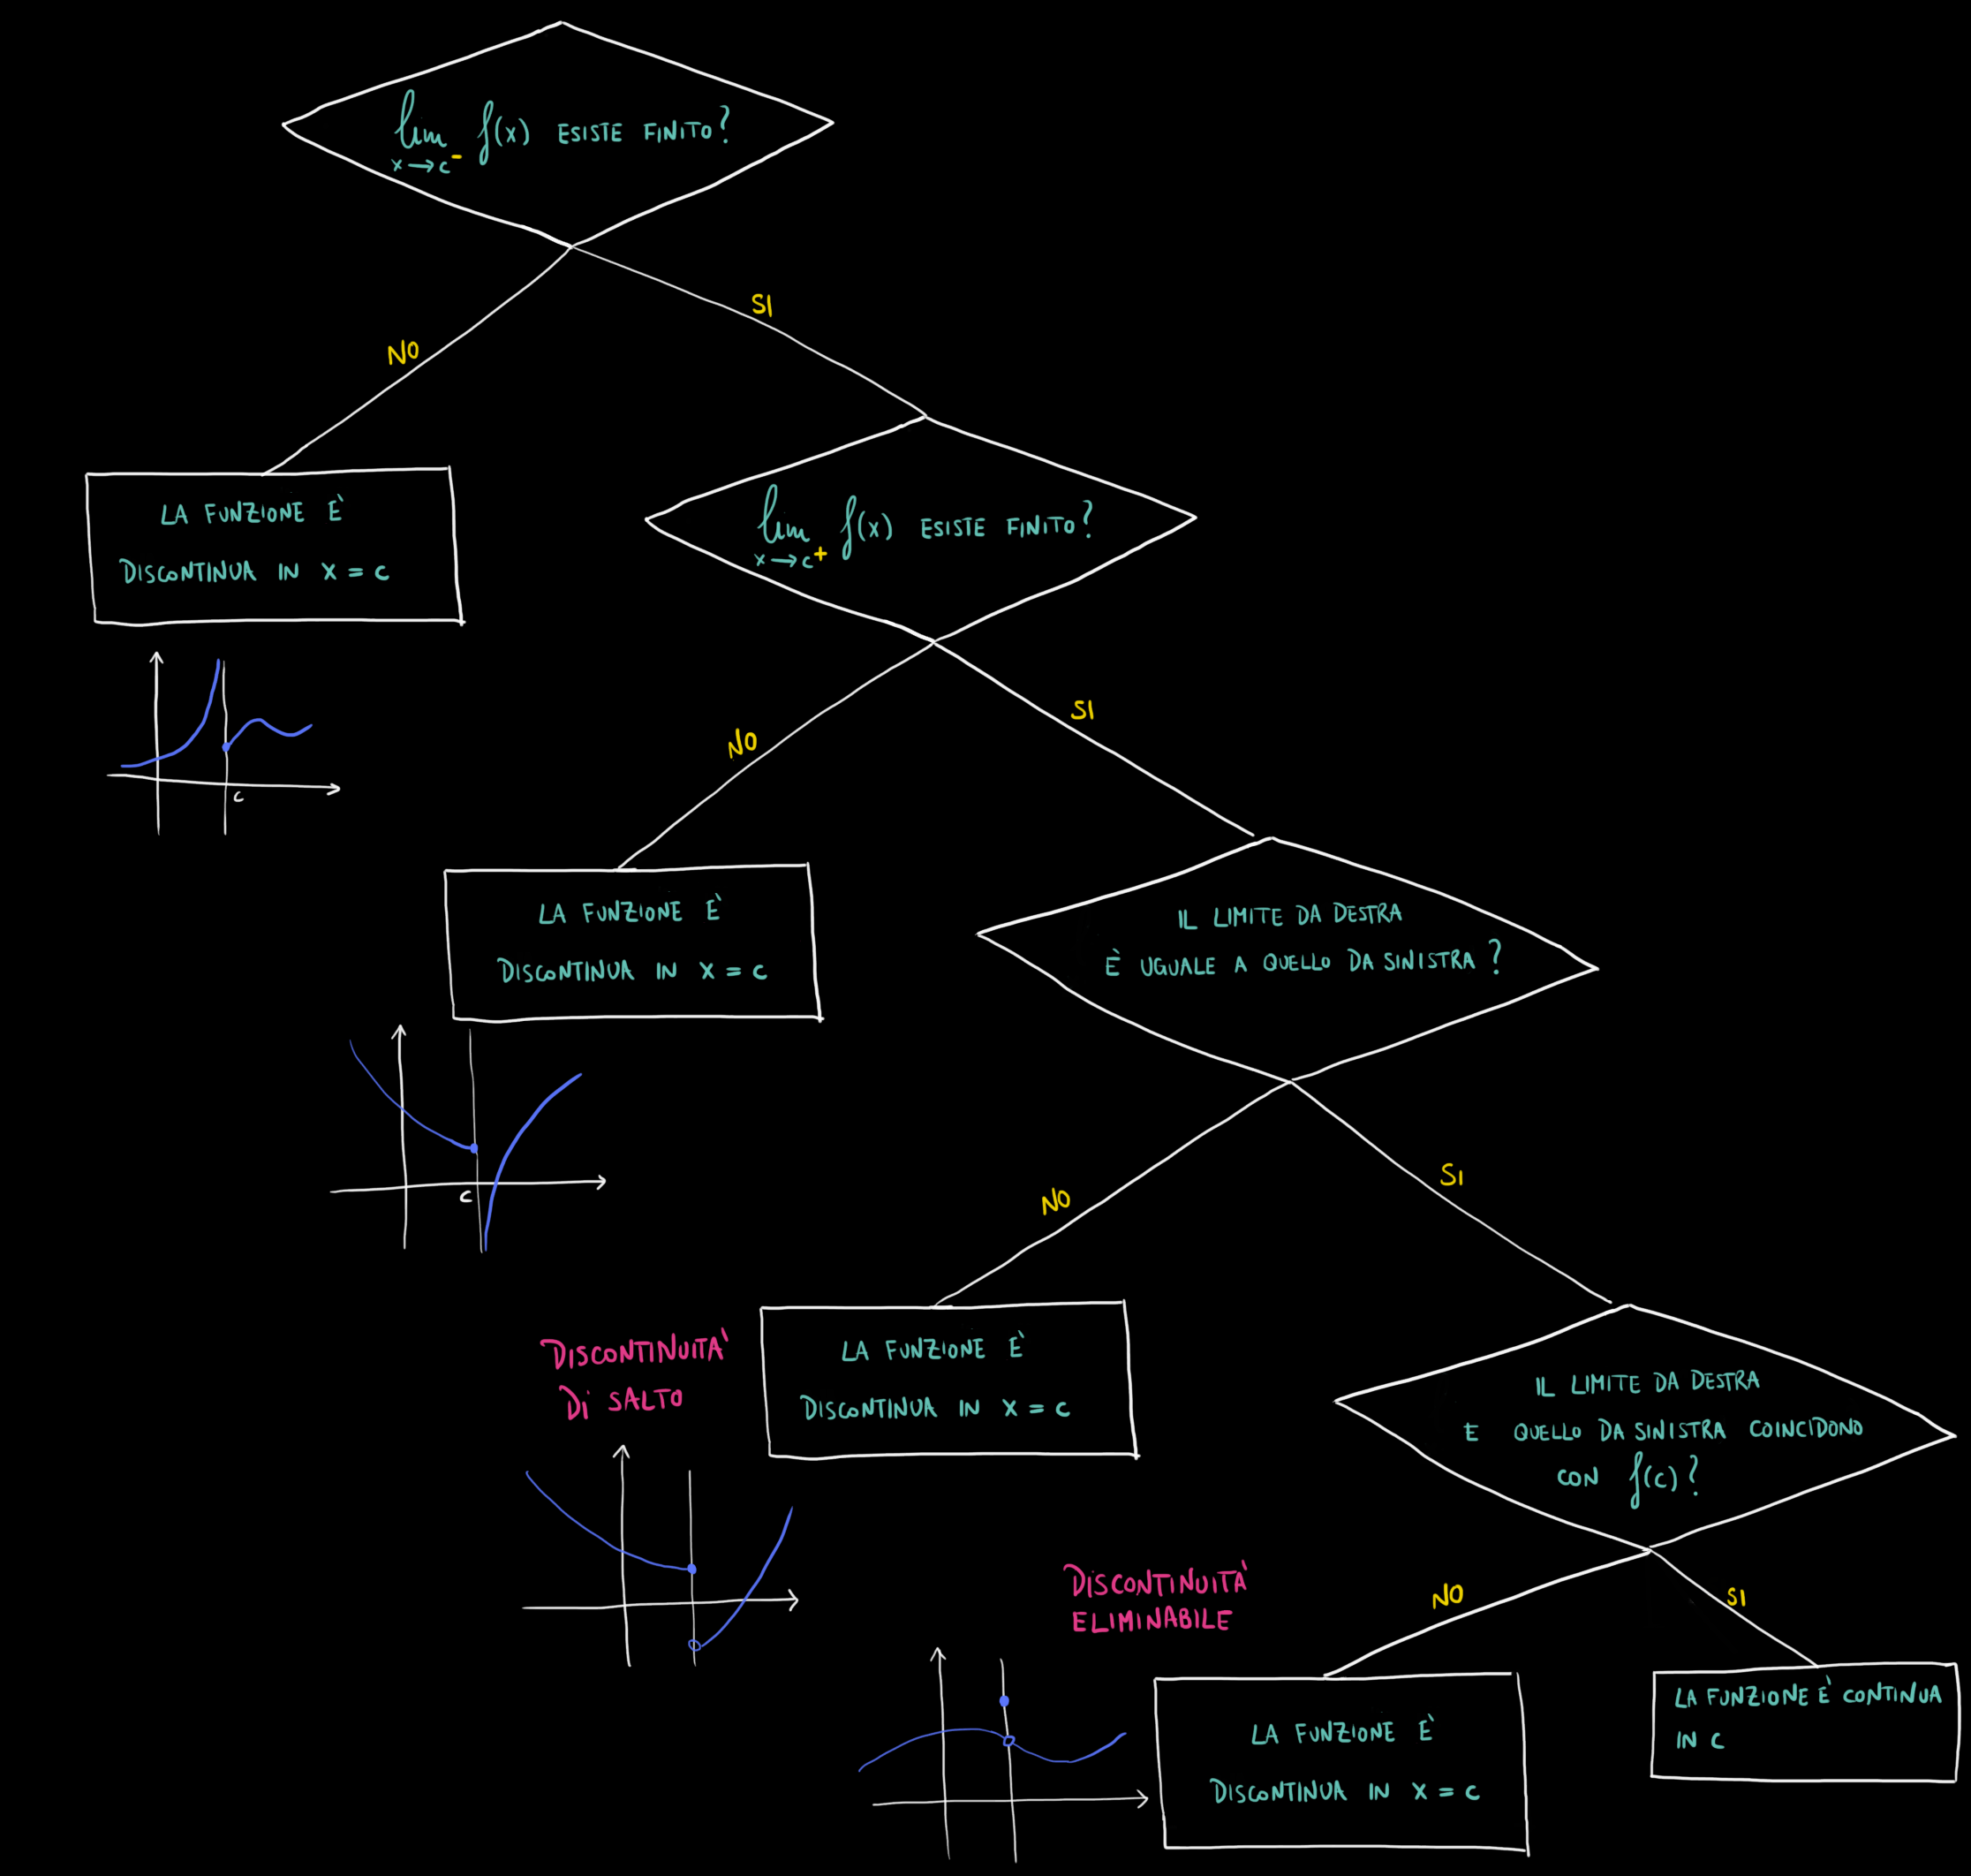 lim f(x) ESISTE FINITO?
x→c-
SI
NO
LA FUNZIONE È
DISCONTINUA IN X = C
lim f(x) ESISTE FINITO?
x→c+
SI
NO
C
LA FUNZIONE È
DISCONTINUA IN X = C
IL LIMITE DA DESTRA
È UGUALE A QUELLO DA SINISTRA?
C
SI
NO
DISCONTINUITA'
Di SALTO
LA FUNZIONE È
DISCONTINUA IN X = C
IL LIMITE DA DESTRA
E QUELLO DA SINISTRA COINCIDONO
CON f(c)?
DISCONTINUITA'
ELIMINABILE
NO
SI
LA FUNZIONE È
DISCONTINUA IN X = C
LA FUNZIONE È CONTINUA
IN C